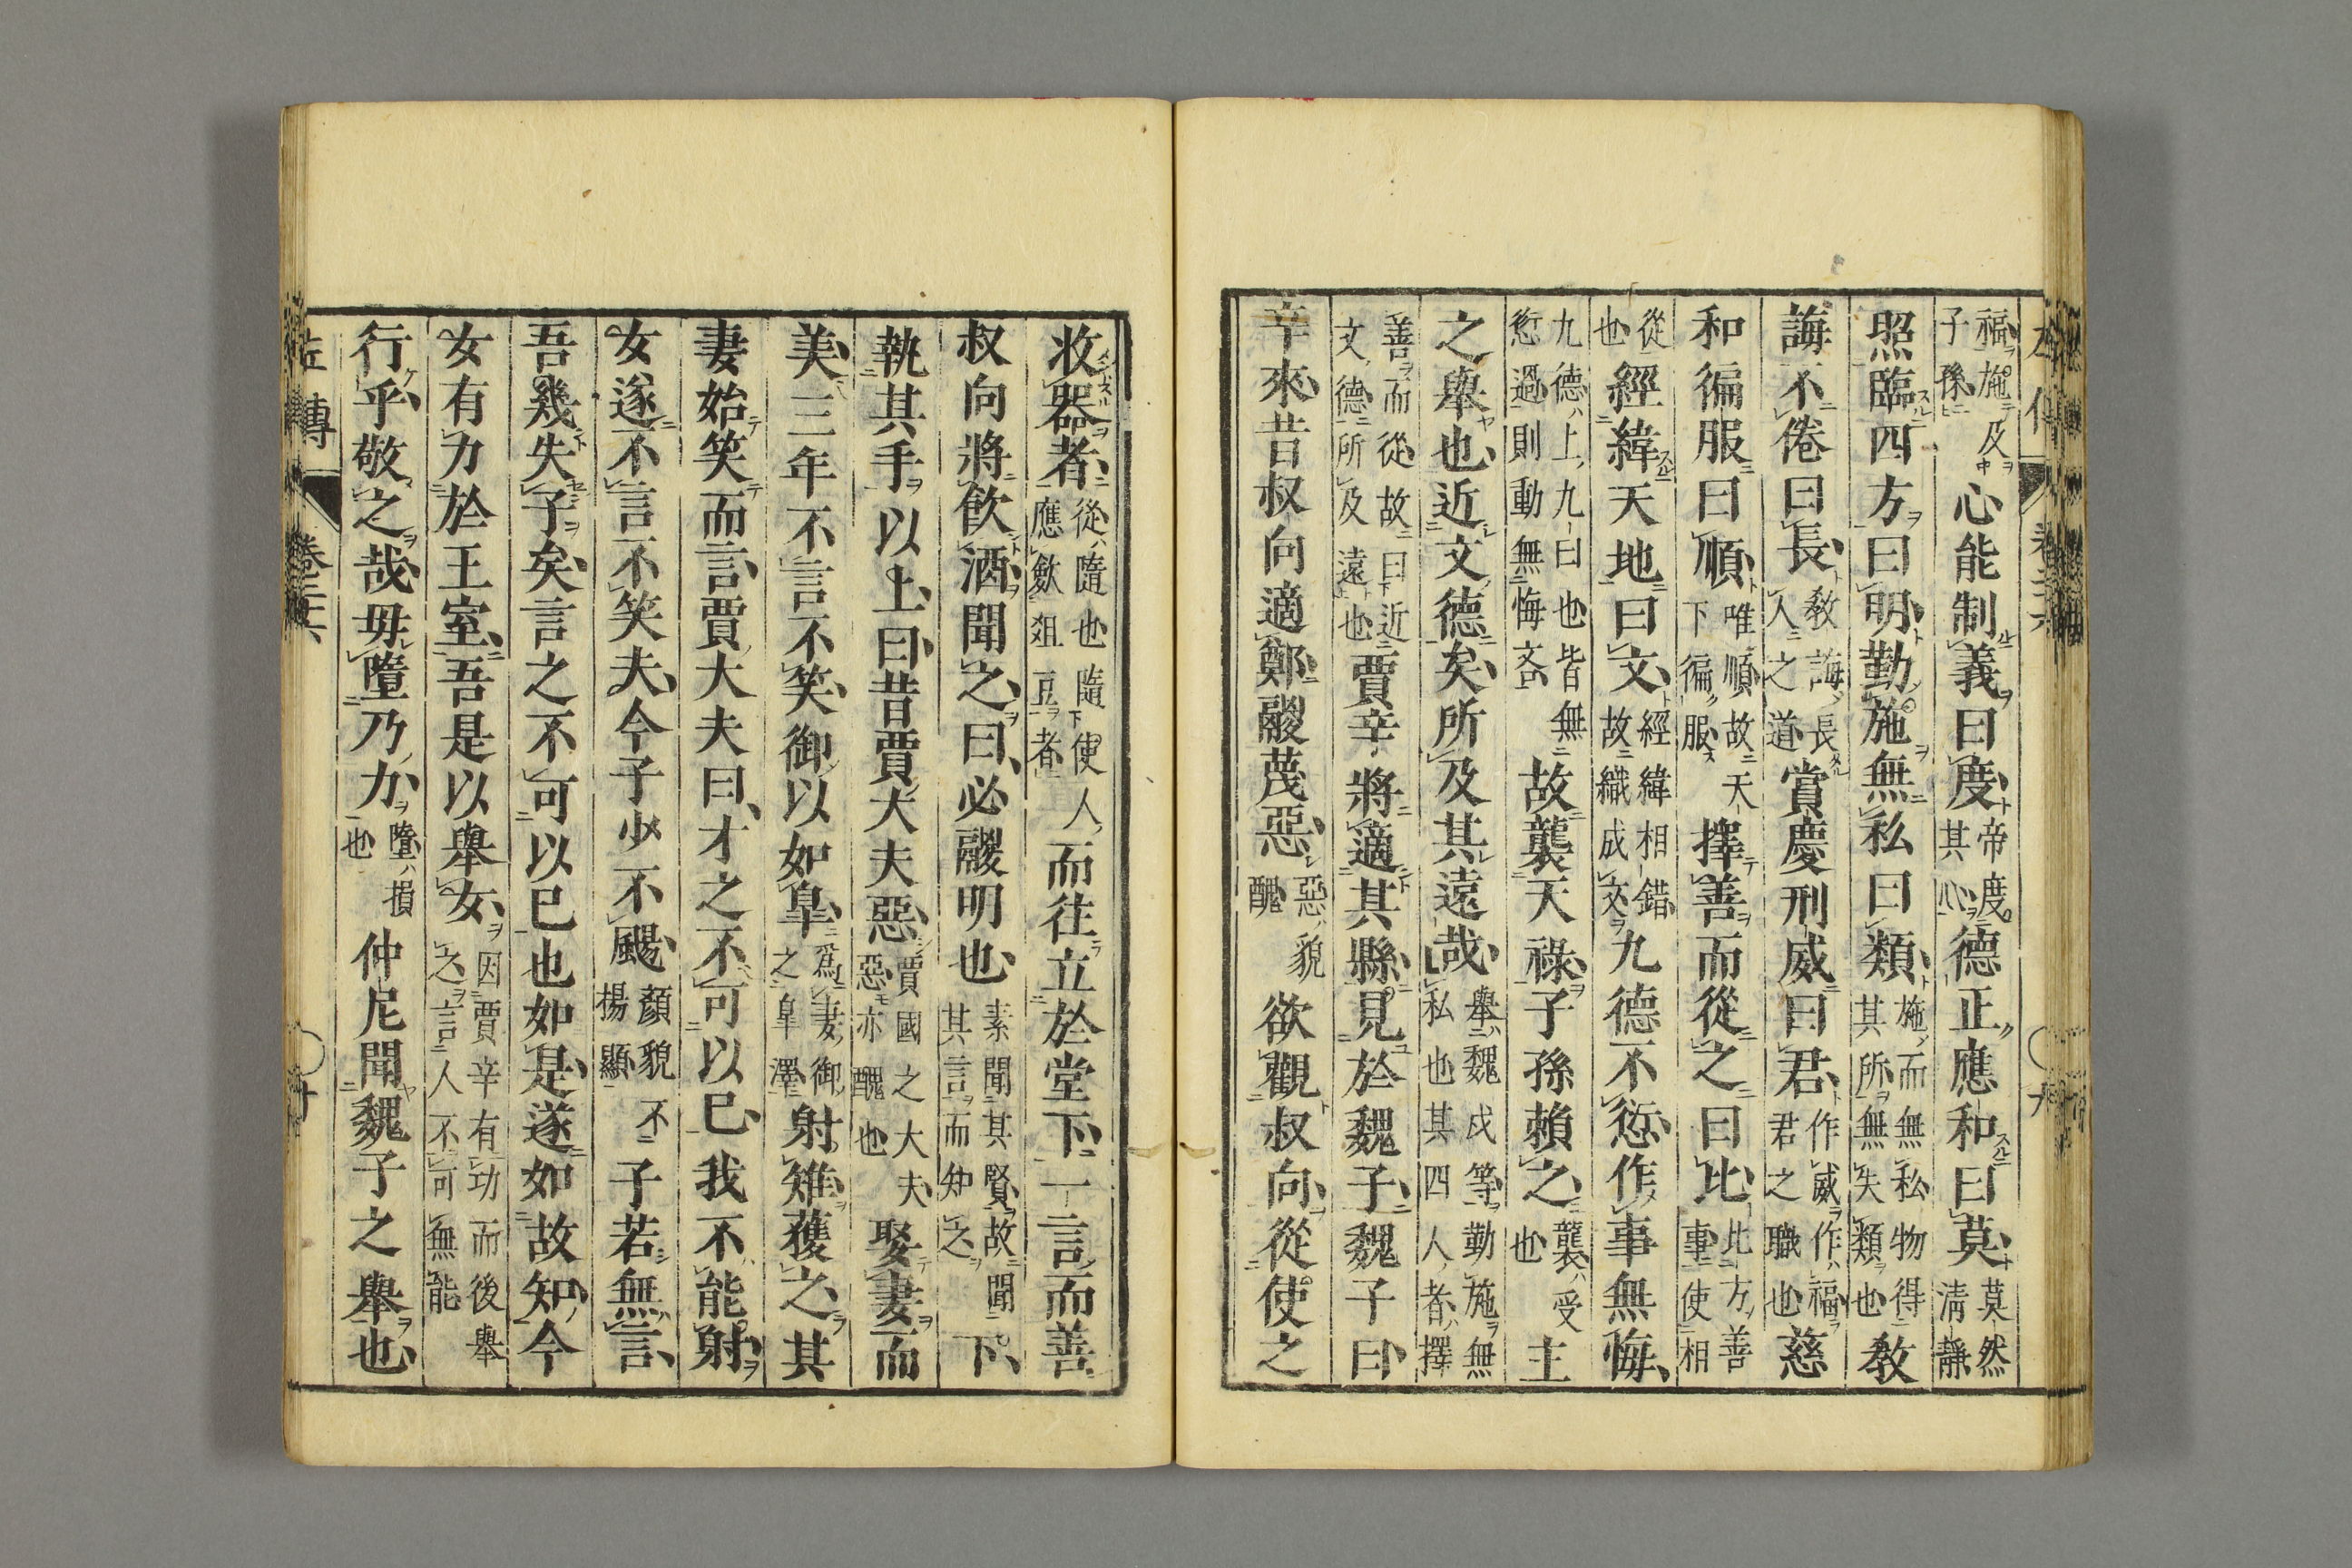 福施及子孫心能制義曰度帝度其心德正應和曰莫莫然清靜
照臨四方曰明勤施無私曰類施而無私物得其所無失類也教
誨不倦曰長教誨長人之道賞慶刑威曰君作威作福君之職也慈
和徧服曰順唯順故天下徧服擇善而從之曰比比方善事使相
從也經緯天地曰文經緯相錯故織成文九德不愆作事無悔
九德上九曰也皆無愆過則動無悔吝故襲天祿子孫賴之襲受也主
之舉也近文德矣所及其遠哉舉魏戊等勤施無私也其四人者擇
善而從故曰近文德所及遠也賈辛將適其縣見於魏子魏子曰
辛來昔叔向適鄭鬷蔑惡惡貌醜欲觀叔向從使之
收器者從隨也隨使人應斂俎豆者而往立於堂下一言而善
叔向將飲酒聞之曰必鬷明也素聞其賢故聞其言而知之下
執其手以上曰昔賈大夫惡賈國之大夫惡亦醜也娶妻而
美三年不言不笑御以如皐爲妻御之皐澤射雉獲之其
妻始笑而言賈大夫曰才之不可以已我不能射
女遂不言不笑夫今子少不颺顏貌不揚顯子若無言
吾幾失子矣言之不可以已也如是遂如故知今
女有力於王室吾是以舉女因賈辛有功而後舉之言人不可無能
行乎敬之哉毋墮乃力墮損也仲尼聞魏子之舉也
左傳 十